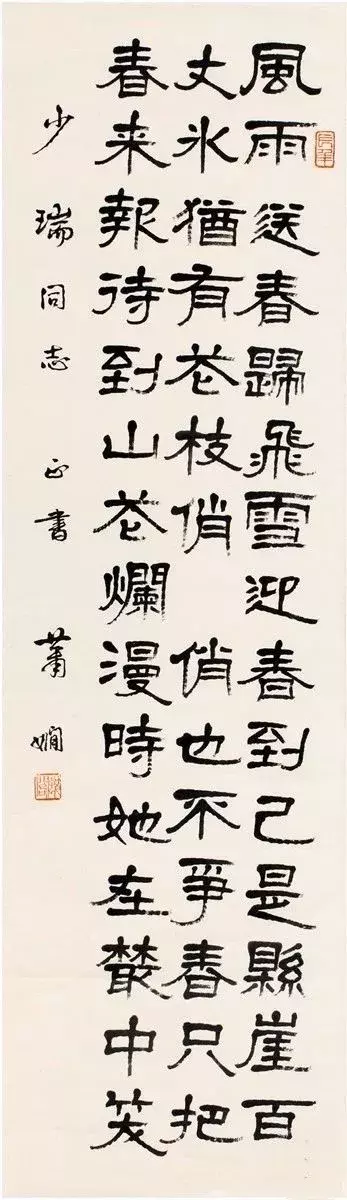 風雨送春歸飛雪迎春到已是縣崖百
丈冰猶有花枝俏 俏也不爭春只把
春来報待到山花爛漫時她在叢中笑
少瑞同志 正書 蕭嫻